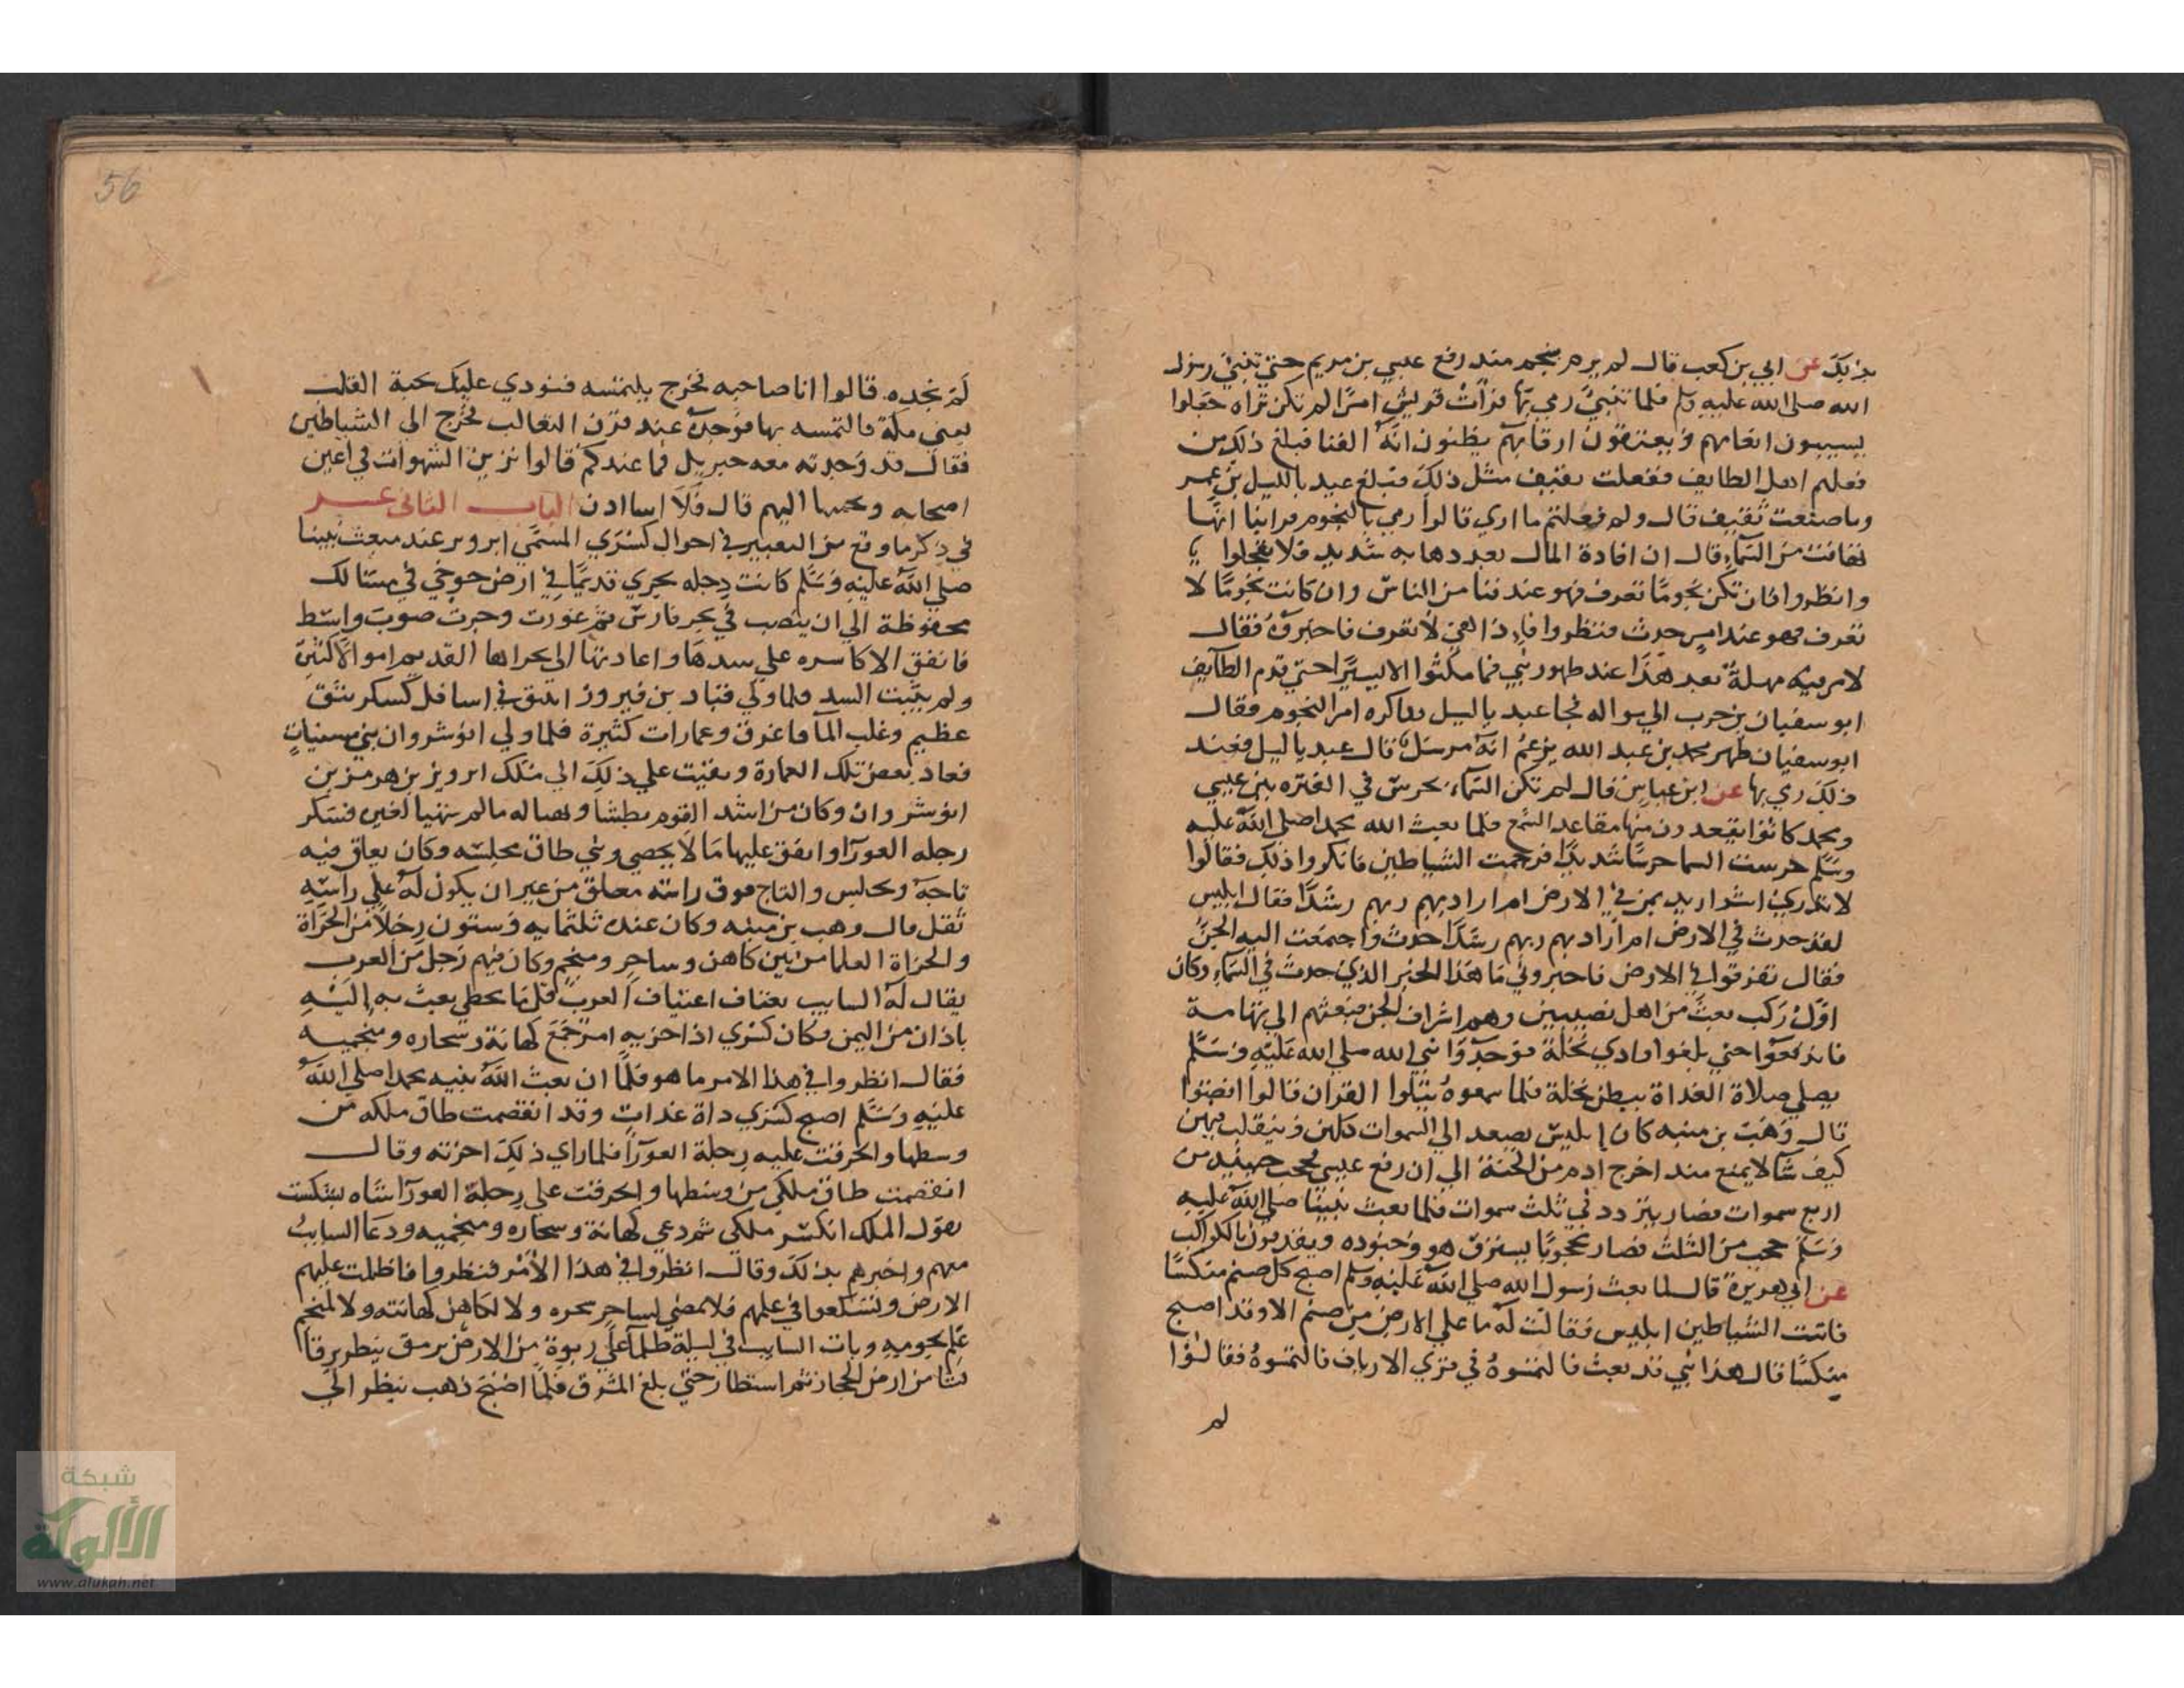 بذلك عن ابي بن كعب قال لم يرم بنجم منذ رفع عيسي بن مريم حتي تنبي رسول
الله صلي الله عليه وسلم فلما تنبي رمي بها فرأت قريش امرا لم تكن تراه فجعلوا
يسيبون انعامهم ويعتقون ارقابهم يظنون انه الفنا فبلغ ذلك من
فعلهم اهل الطايف ففعلت ثقيف مثل ذلك فبلغ عبد ياليل بن عمر
وما صنعت ثقيف قال ولم فعلتم ما اري قالوا رمي بالنجوم فرايناها
تهافتت من السماء قال ان افادة المال بعد ذهابه شديد فلا تعجلوا
وانظروا فان تكن نجوما تعرف فهو عند فنا من الناس وان كانت نجوما لا
تعرف فهو عند امر حدث فنظروا فاذا هي لا تعرف فاخبروه فقال
الامر فيه مهلة بعد هذا عند ظهور نبي فما مكثوا الا يسيرا حتي قدم الطايف
ابو سفيان بن حرب الي امواله فجا عبد ياليل فذاكره امر النجوم فقال
ابو سفيان ظهر محمد بن عبد الله يزعم انه مرسل قال عبد ياليل فعند
ذلك رمي بها عن ابن عباس قال لم تكن السماء تحرس في الفتره بين عيسي
ومحمد كانوا يقعدون منها مقاعد السمع فلما بعث الله محمدا صلي الله عليه
وسلم حرست السما حرسا شديدا فرجمت الشياطين فانكروا ذلك فقالوا
لا ندري اشر اريد بمن في الارض ام اراد بهم ربهم رشدا فقال ابليس
لقد حدث في الارض ام اراد بهم ربهم رشدا حدث واجتمعت اليه الجن
فقال تفرقوا في الارض فاخبروني ما هذا الخبر الذي حدث في السماء وكان
اول ركب بعث من اهل نصيبين وهم اشراف الجن فبعثهم الي تهامة
فاندفعوا حتي بلغوا وادي نخلة فوجدوا نبي الله صلي الله عليه وسلم
يصلي صلاة الغداة ببطن نخلة فلما سمعوه يتلوا القران قالوا انصتوا
قال وهب بن منبه كان ابليس يصعد الي السموات كلهن ويتقلب فيهن
كيف شآ لا يمنع منذ اخرج ادم من الجنة الي ان رفع عيسي فحجب حينيذ من
اربع سموات فصار يتردد في ثلث سموات فلما بعث نبينا صلي الله عليه
وسلم حجب من الثلث فصار محجوبا يسترق هو وجنوده ويقذفون بالكواكب
عن ابي هريرة قال لما بعث رسول الله صلي الله عليه وسلم اصبح كل صنم منكسا
فاتت الشياطين ابليس فقالت له ما علي الارض من صنم الا وقد اصبح
منكسا قال هذا نبي قد بعث فالتمسوه في قري الارياف فالتمسوه فقالوا
لم
56
لم نجده قالوا انا صاحبه فخرج يلتمسه فنودي عليك بحبة القلب
يعني مكة فالتمسه بها فوجده عند قرن الثعالب فخرج الي الشياطين
فقال قد وجدته معه جبريل فما عندكم قالوا نزين الشهوات في اعين
اصحابه ونحببها اليهم قال فلا اسا اذن الباب الثاني عشر
في ذكر ما وقع من التغيير في احوال كسري المسمي ابرويز عند مبعث نبينا
صلي الله عليه وسلم كانت دجله تجري قديما في ارض جوخي في مسالك
محفوظة الي ان ينصب في بحر فارس ثم غورت وجرت صوب واسط
فانفق الاكاسره علي سدها واعادتها الي مجراها القديم اموالا كثيرة
ولم يثبت السد فلما ولي قباد بن فيروز انبثق في اسافل كسكر بثق
عظيم وغلب المآ فاغرق وعمارات كثيرة فلما ولي انوشروان بني مسنيات
فعاد بعض تلك العمارة وبقيت علي ذلك الي ملك ابرويز بن هرمز بن
انوشروان وكان من اشد القوم بطشا وتهيا له ما لم يتهيا لغيره فسكر
دجله العورآ وانفق عليها مالا يحصي وبني طاق مجلسه وكان يعلق فيه
تاجه ويجلس والتاج فوق راسه معلق من غير ان يكون له علي راسه
ثقل قال وهب بن منبه وكان عنده ثلثمايه وستون رجلا من الحزاة
والحزاة العلما من بين كاهن وساحر ومنجم وكان فيهم رجل من العرب
يقال له السايب يعتاف اعتياف العرب قل ما يخطي بعث به اليه
باذان من اليمن وكان كسري اذا حزبه امر جمع كهانة وسحاره ومنجميه
فقال انظروا في هذا الامر ما هو فلما ان بعث الله نبيه محمدا صلي الله
عليه وسلم اصبح كسري داة غداة وقد انقصمت طاق ملكه من
وسطها وانخرقت عليه دجلة العورآ فلما راي ذلك احزنه وقال
انقصمت طاق ملكي من وسطها وانخرقت علي دجلة العورآ شاه بشكست
يقول الملك انكسر ملكي ثم دعي كهانة وسحاره ومنجميه ودعا السايب
معهم واخبرهم بذلك وقال انظروا في هذا الامر فنظروا فاظلمت عليهم
الارض وتسكعوا في علمهم فلا يمضي لساحر سحره ولا لكاهن كهانته ولا لمنجم
علم نجوميه وبات السايب في ليلة ظلمآ علي ربوة من الارض يرمق ينظر برقا
نشا من ارض الحجاز ثم استطار حتي بلغ المشرق فلما اصبح ذهب ينظر الي
شبكة
الألوكة
www.alukah.net